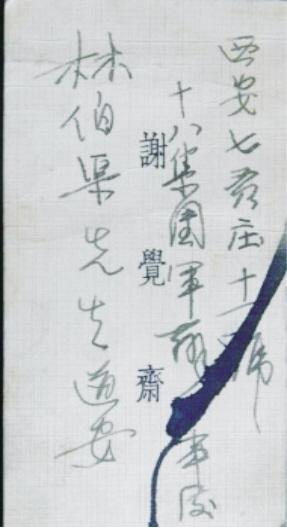 西安七贤庄十一號
十八集團軍辦事處
謝覺齋
林伯渠先生道安